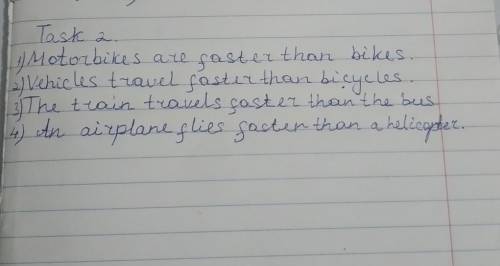 Task 2.
1) Motorbikes are faster than bikes.
2) Vehicles travel faster than bicycles.
3) The train travels faster than the bus
4) An airplane flies faster than a helicopter.